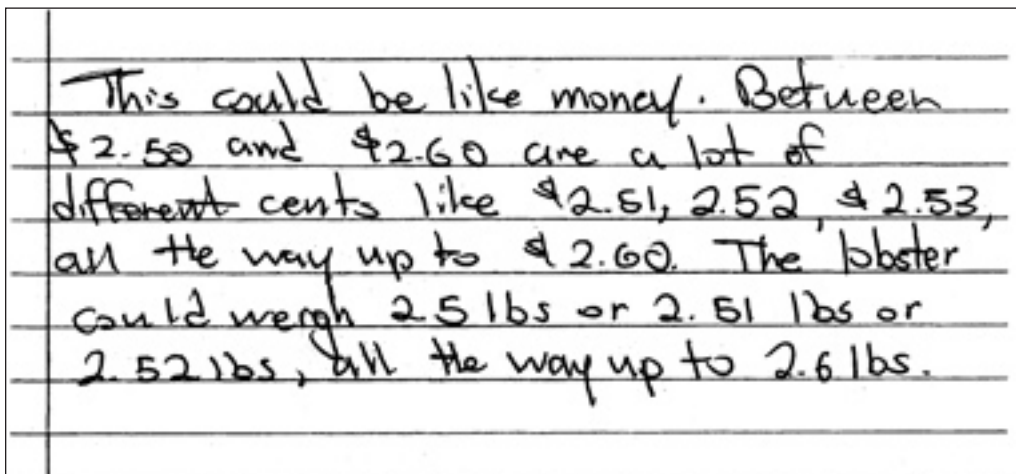 This could be like money. Between
$2.50 and $2.60 are a lot of
different cents like $2.51, 2.52, $2.53,
all the way up to $2.60. The lobster
could weigh 2.5 lbs or 2.51 lbs or
2.52 lbs, all the way up to 2.6 lbs.